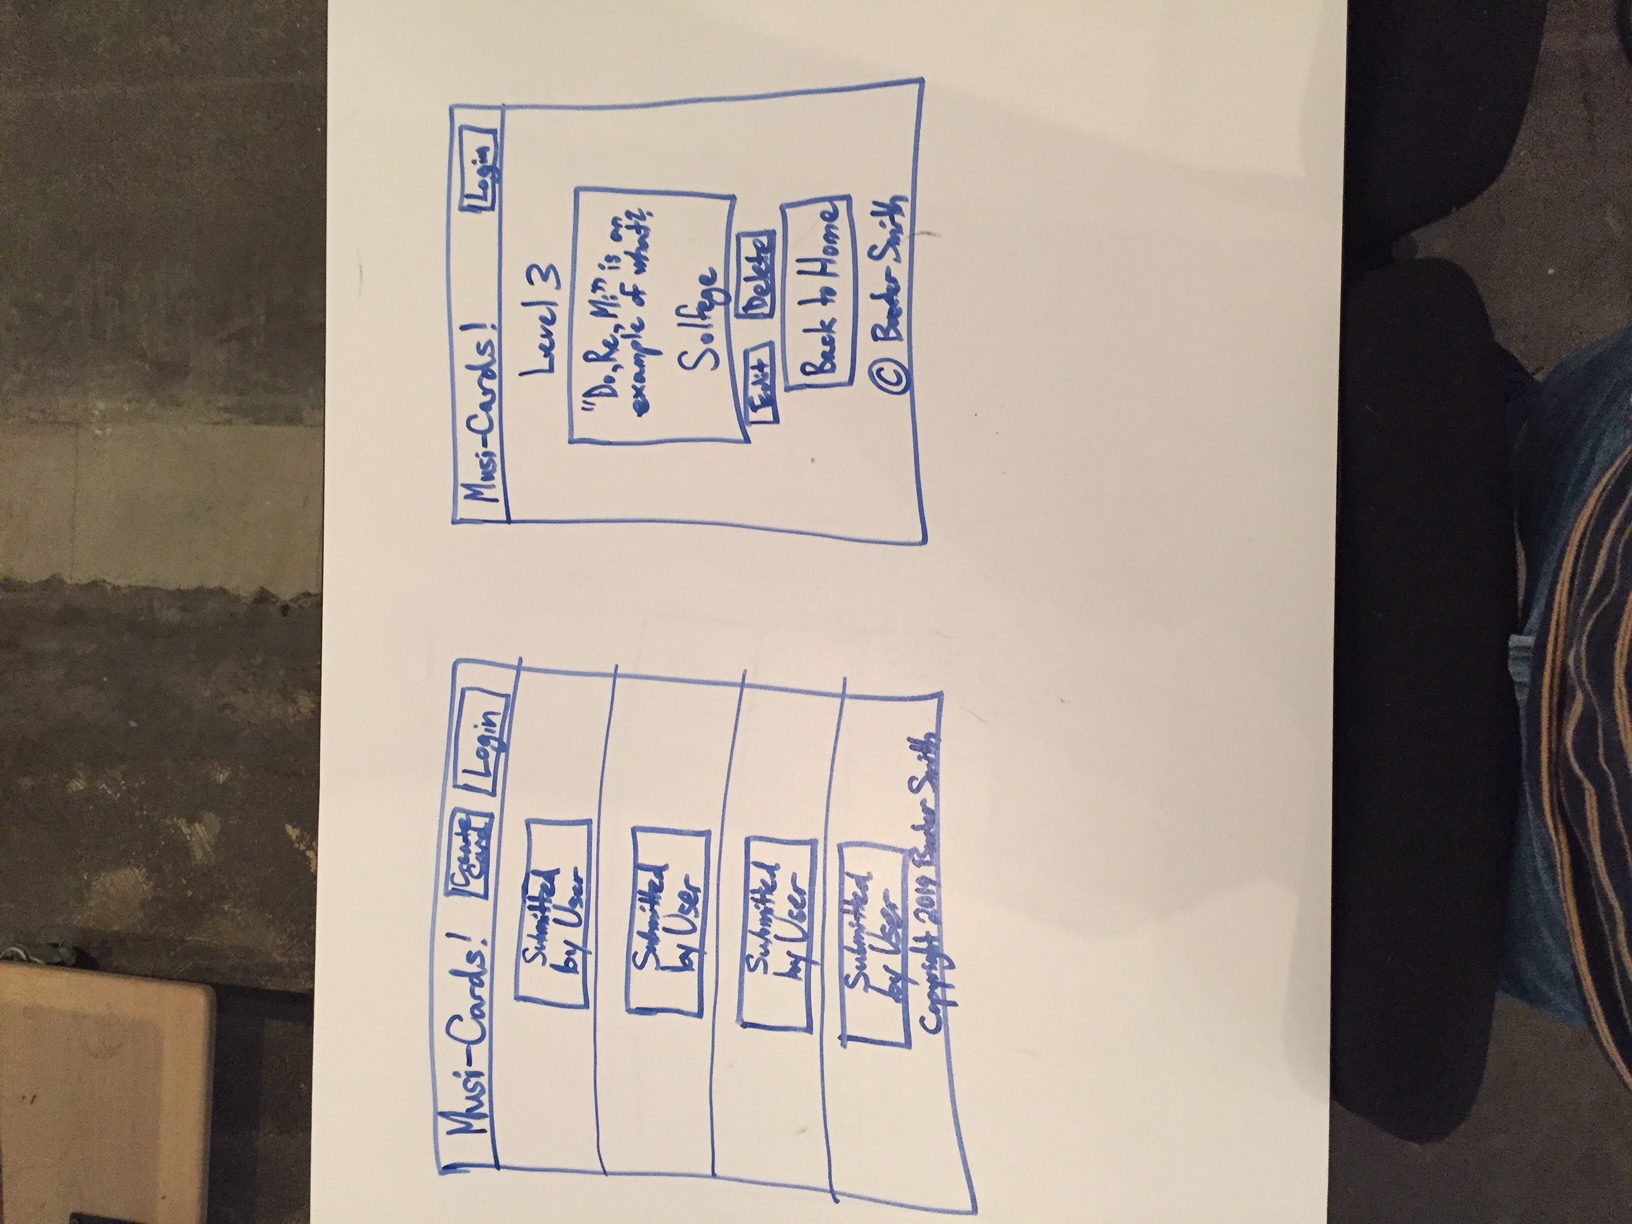 Musi-Cards!
Create
Card
Login
Submitted
by User
Submitted
by User
Submitted
by User
Submitted
by User
Copyright 2019 Smith
Musi-Cards!
Login
Level 3
"Do, Re, Mi" is an
example of what?
Solfege
Edit
Delete
Back to Home
© Smith